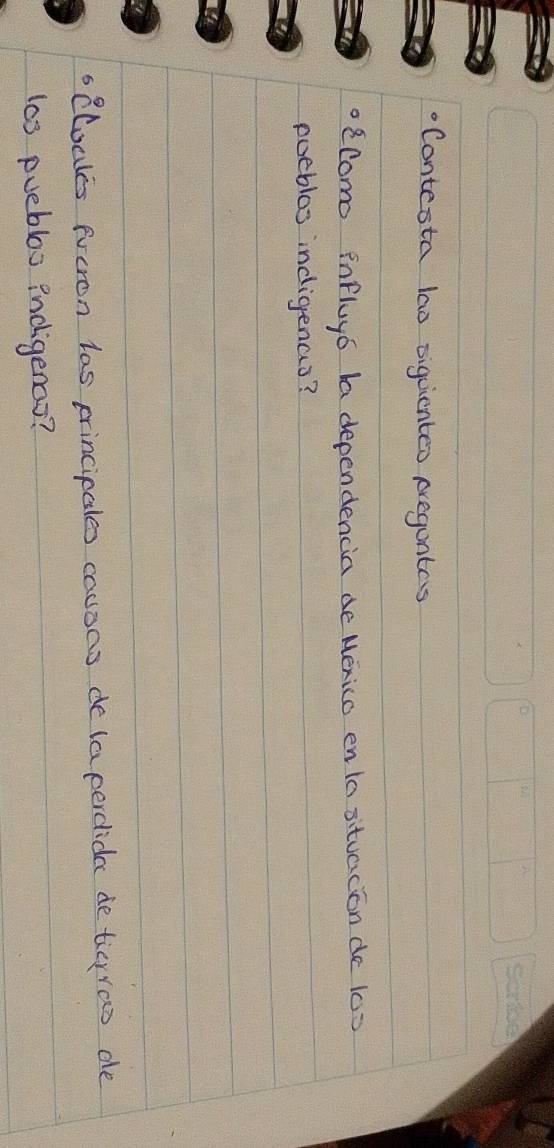 •Contesta las siguientes preguntas
•¿Como influyó la dependencia de México en la situación de los
pueblos indigenas?
•¿Cuales fueron las principales causas de la perdida de tierras de
los pueblos indigenas?
D M A
Scribe